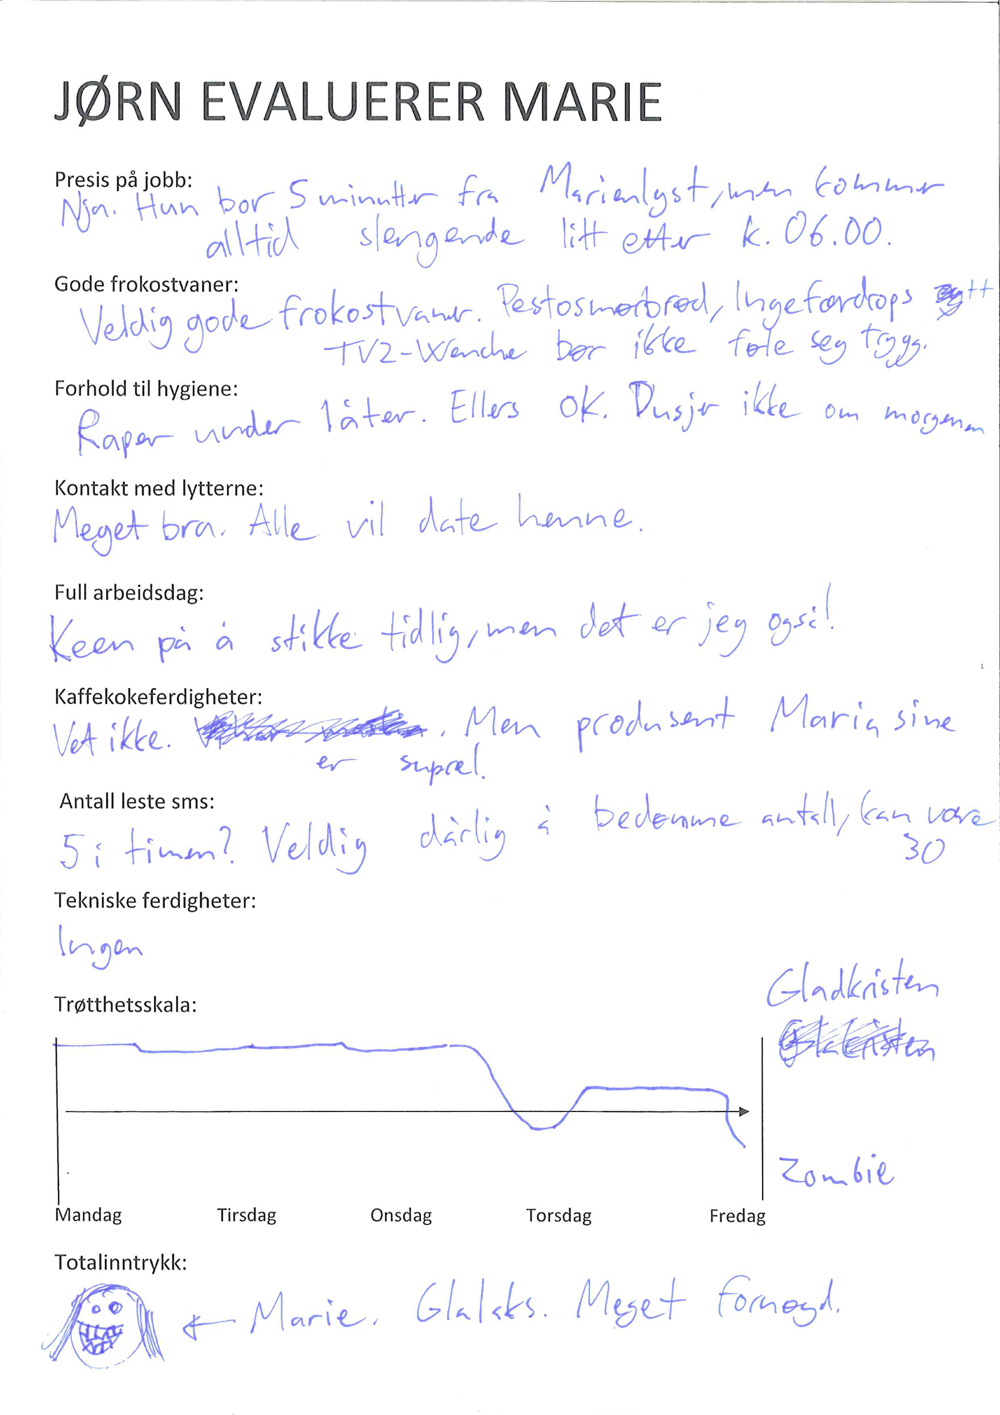 JØRN EVALUERER MARIE
Presis på jobb:
Nja. Hun bor 5 minutter fra Marienlyst, men kommer
alltid slengende litt etter k. 06.00.
Gode frokostvaner:
Veldig gode frokostvaner. Pestosmørbrød, Ingefærdrops
TV2-Wenche bør ikke føle seg trygg.
Forhold til hygiene:
Raper under låter. Ellers OK. Dusjer ikke om morgenen
Kontakt med lytterne:
Meget bra. Alle vil date henne.
Full arbeidsdag:
Keen på å stikke tidlig, men det er jeg også!
Kaffekokeferdigheter:
Vet ikke. . Men produsent Maria sine
er supre!
Antall leste sms:
5 i timen? Veldig dårlig å bedømme antall, kan være
30
Tekniske ferdigheter:
Ingen
Trøtthetsskala:
Gladkristen
Zombie
Mandag Tirsdag Onsdag Torsdag Fredag
Totalinntrykk:
← Marie. Glalaks. Meget fornøyd.